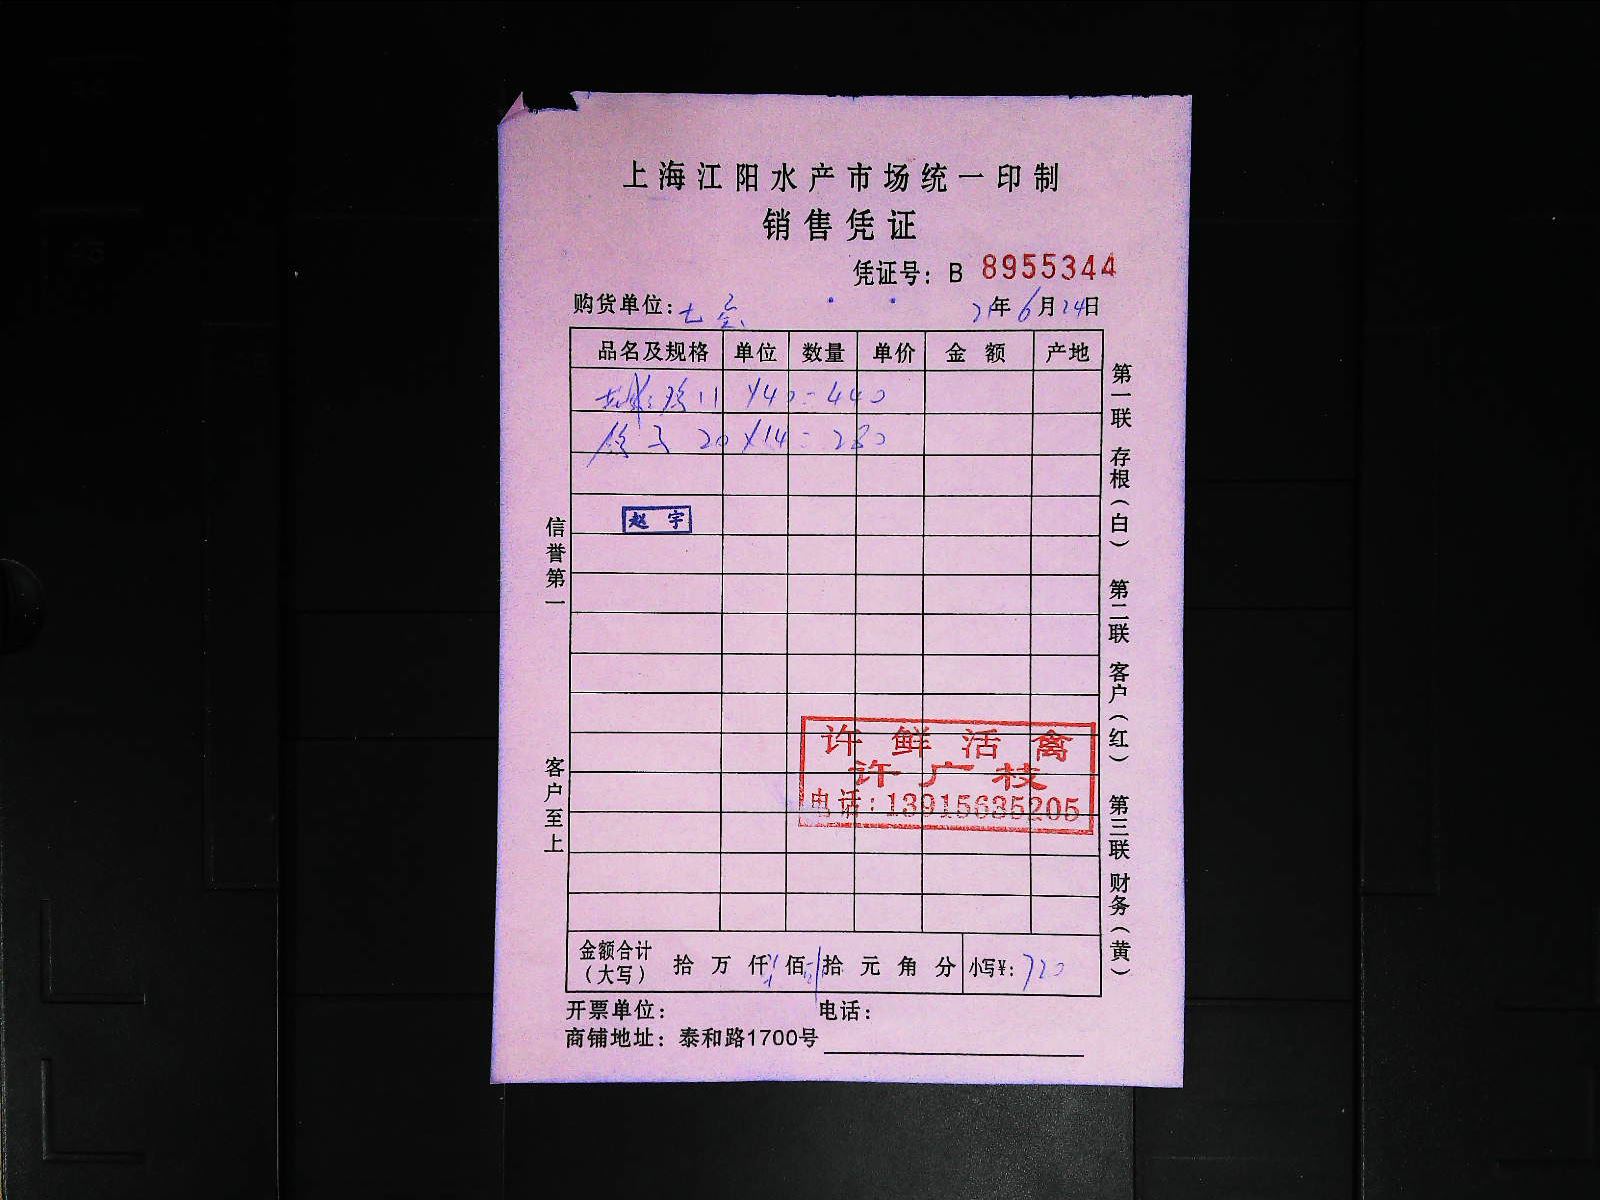 上海江阳水产市场统一印制
销售凭证
凭证号：B 8955344
购货单位：七宝 21年6月24日
品名及规格 单位 数量 单价 金额 产地
鸡 11 ×40=440
鸽子 20×14=280
赵宇
信誉第一
客户至上
许鲜活禽
许广枝
电话：13915635205
金额合计（大写） 拾 万 仟 佰 拾 元 角 分 小写¥：720
开票单位： 电话：
商铺地址：泰和路1700号
第一联 存根（白） 第二联 客户（红） 第三联 财务（黄）